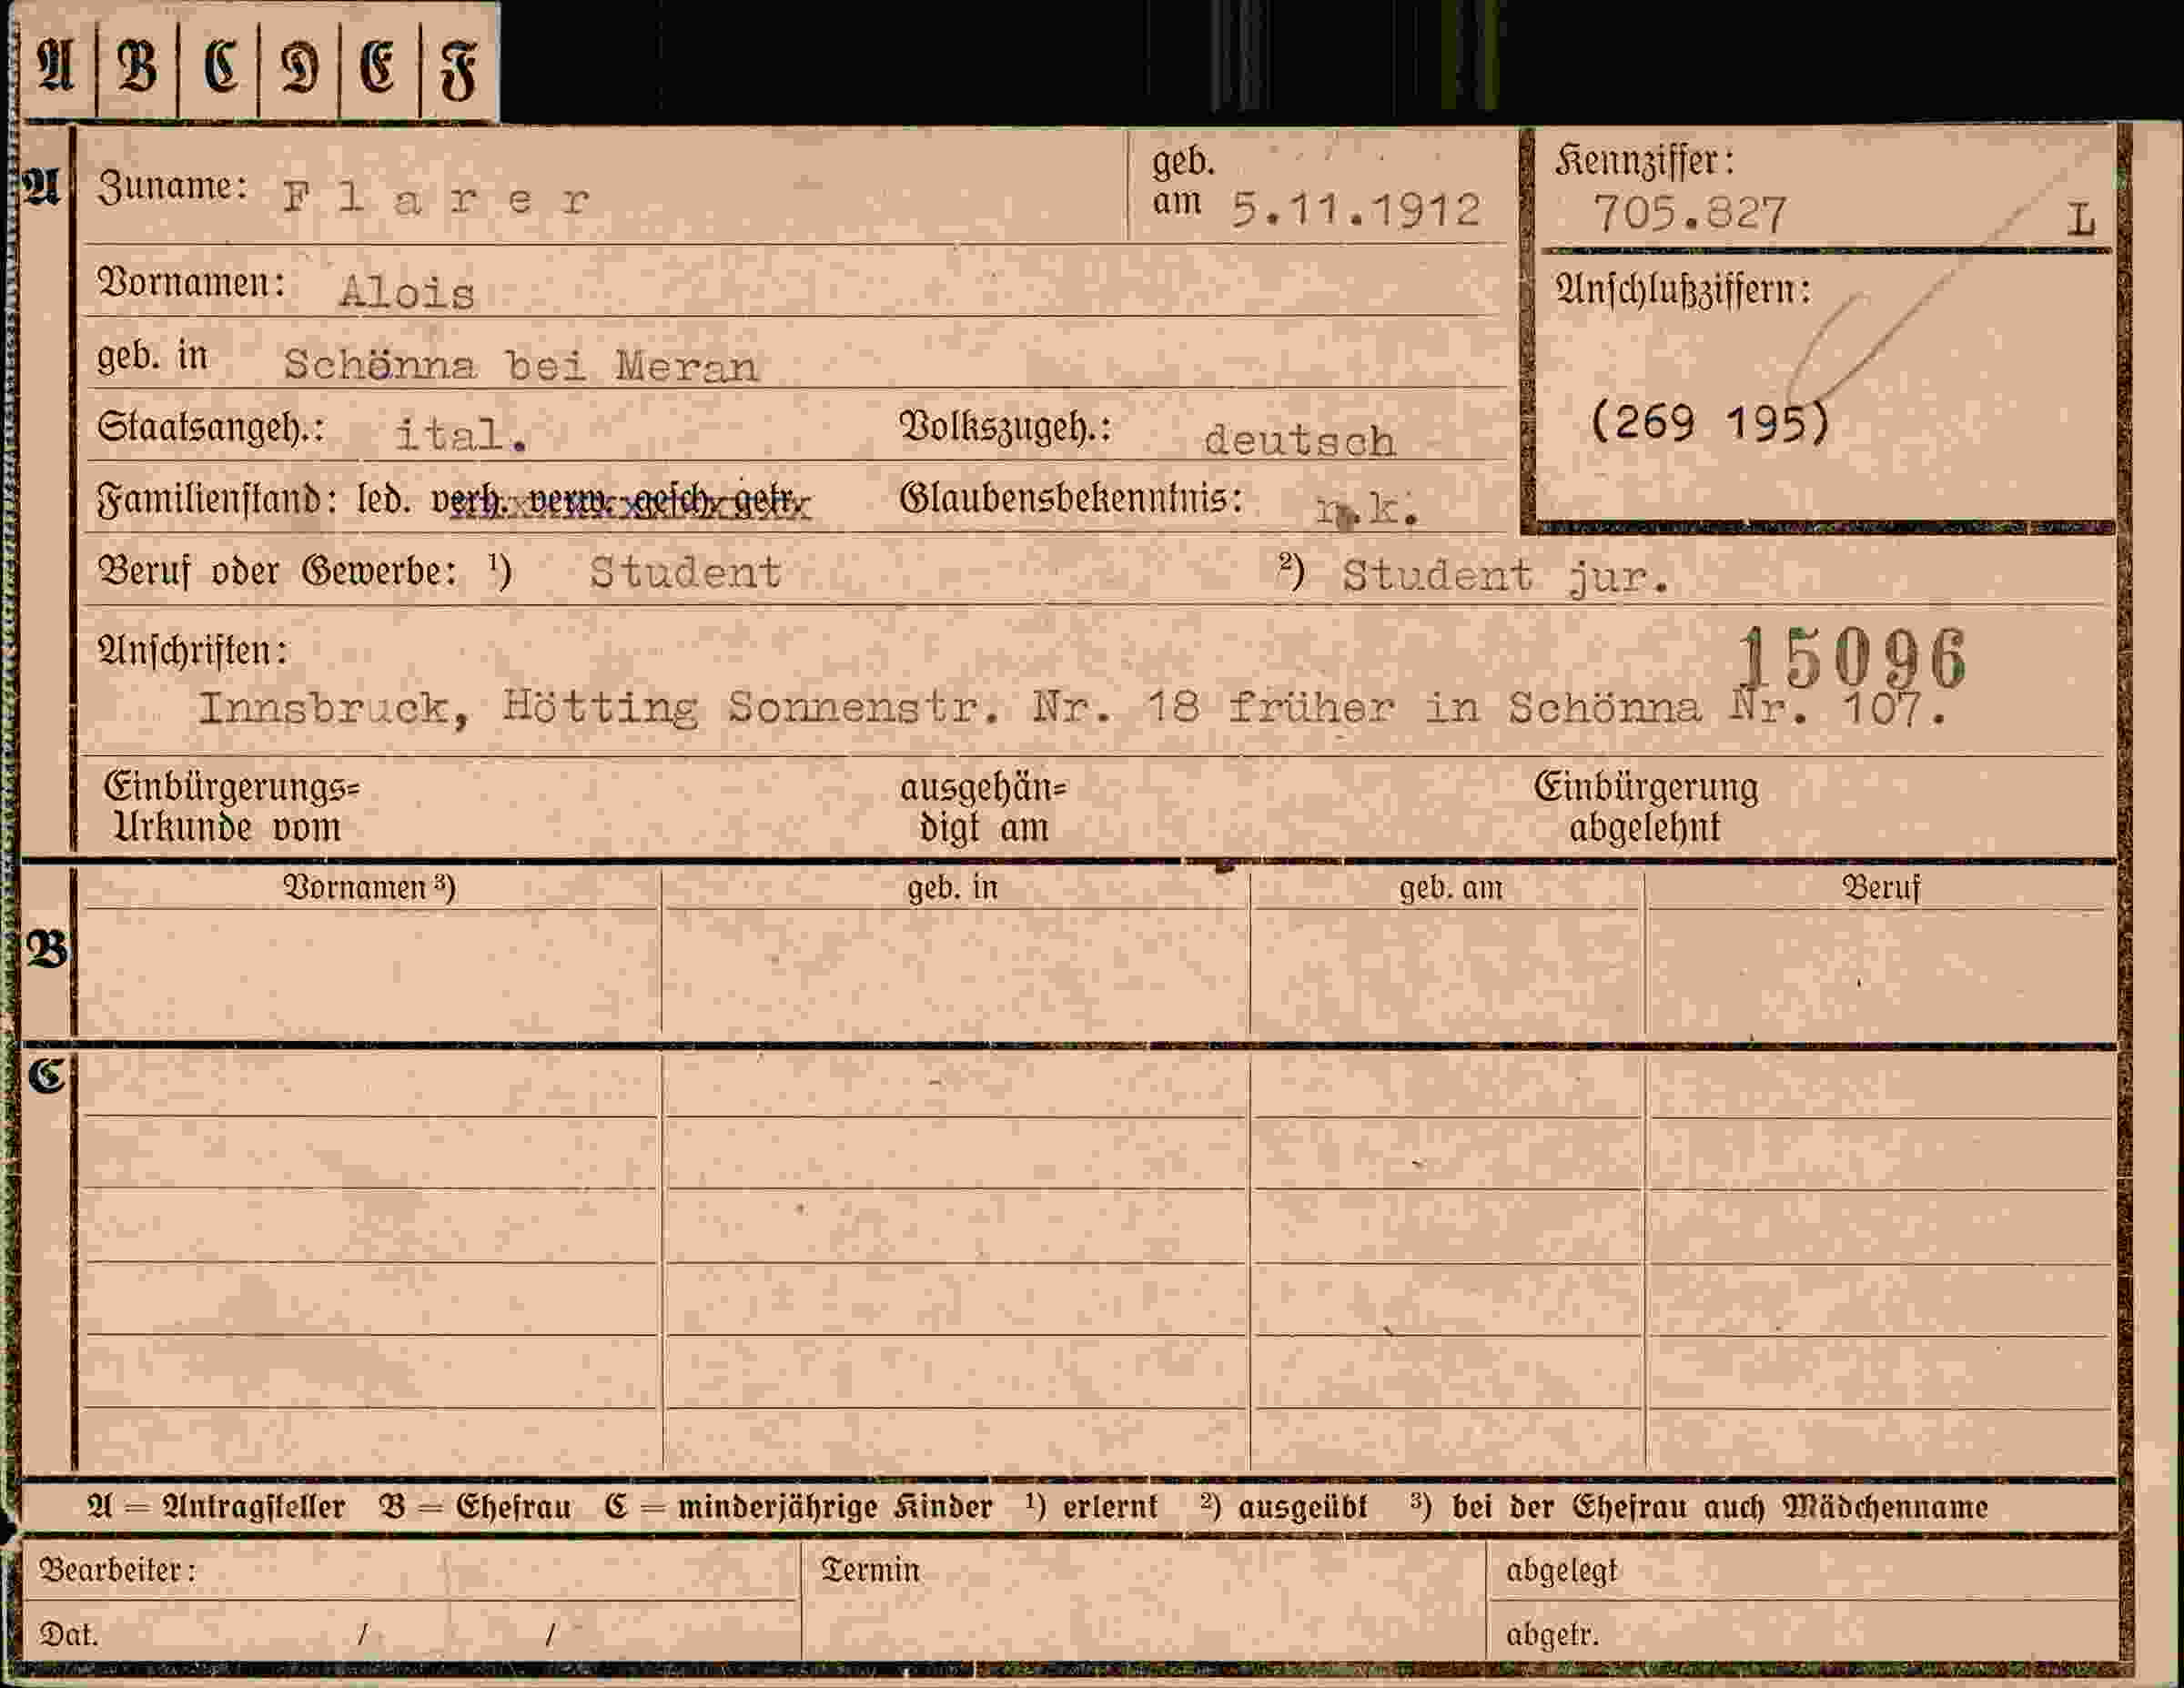 A B C D E F
A Zuname: Flarer geb. am 5.11.1912 Kennziffer: 705.827 L
Vornamen: Alois Anschlußziffern:
geb. in Schönna bei Meran
Staatsangeh.: ital. Volkszugeh.: deutsch (269 195)
Familienstand: led. verh. verw. gesch. getr. Glaubensbekenntnis: r.k.
Beruf oder Gewerbe: ¹) Student ²) Student jur.
Anschriften: 15096
Innsbruck, Hötting Sonnenstr. Nr. 18 früher in Schönna Nr. 107.
Einbürgerungs= ausgehän= Einbürgerung
Urkunde vom digt am abgelehnt
Vornamen ³) geb. in geb. am Beruf
B
C
A = Antragsteller B = Ehefrau C = minderjährige Kinder ¹) erlernt ²) ausgeübt ³) bei der Ehefrau auch Mädchenname
Bearbeiter: Termin abgelegt
Dat. / / abgetr.